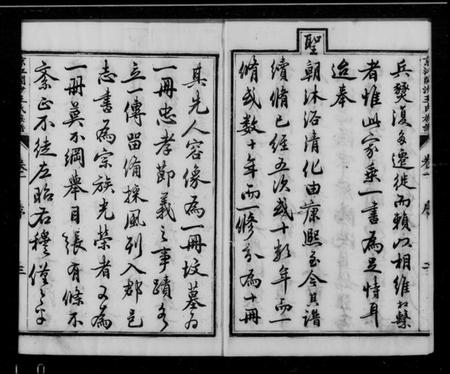 兵燹復多遷徙而賴以相維相繫
者惟此家乘一書為足恃耳
迨奉
聖
朝沐浴清化由康熙至今其譜
續脩已經五次或十數年而一
脩或數十年而一修分為十冊
其先人容像為一冊墳墓為
一冊忠孝節義之事蹟為
立一傳留備採風列入郡邑
志書為宗族光榮者又為
一冊莫不綱舉目張有條不
紊正不徒左昭右穆僅